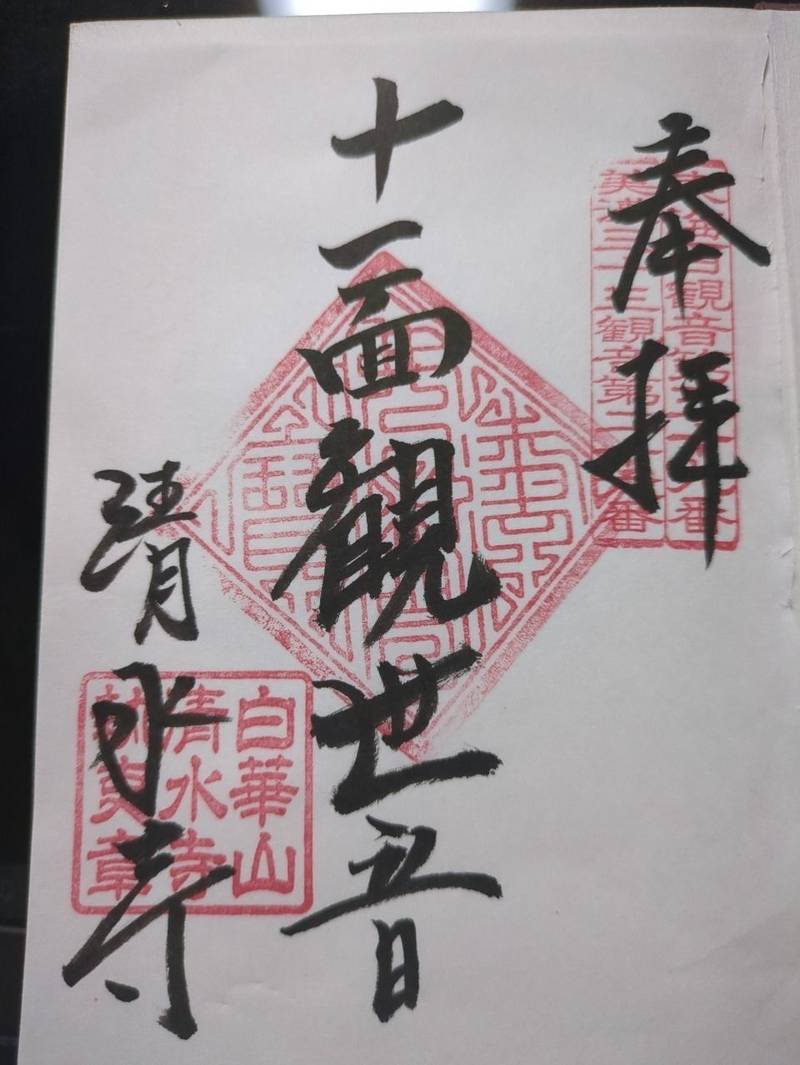 奉拝
観音 九番
美濃三十三観音第二 番
十一面観世音
清水寺
白華山
清水寺
章